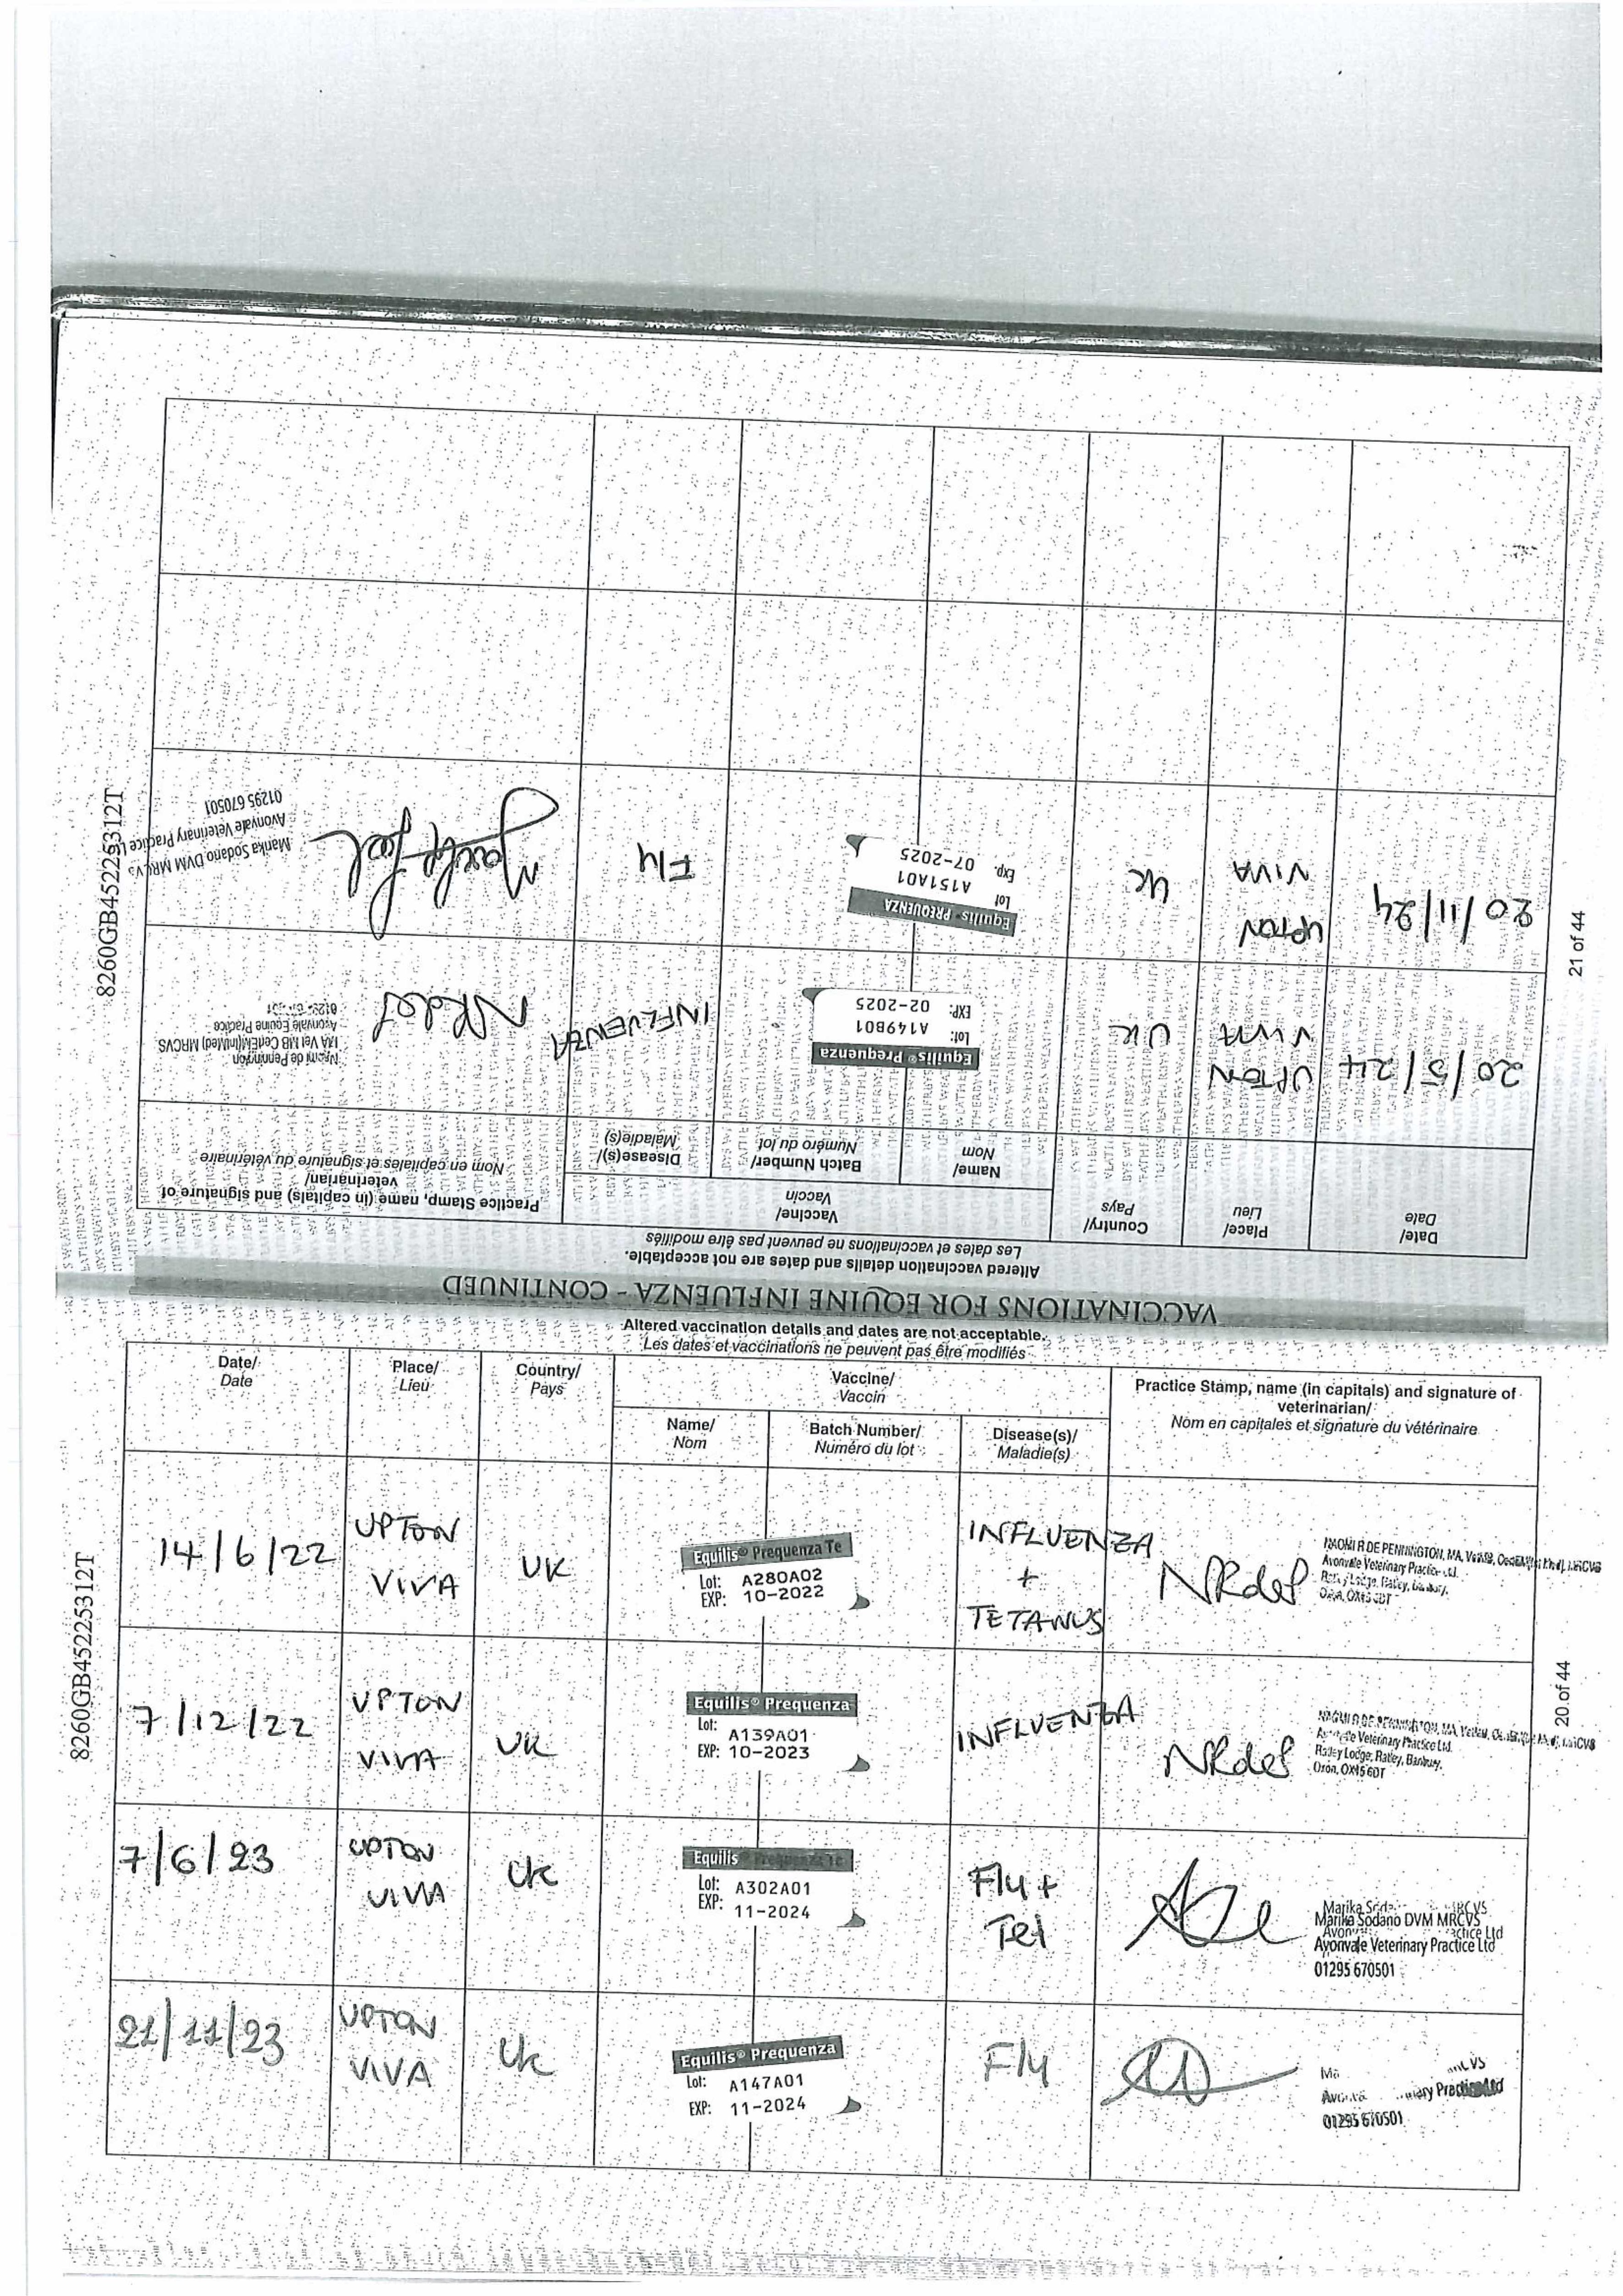 Altered vaccination details and dates are not acceptable.
Les dates et vaccinations ne peuvent pas être modifiés
Date/
Date
Place/
Lieu
Country/
Pays
Vaccine/
Vaccin
Name/
Nom
Batch Number/
Numéro du lot
Disease(s)/
Maladie(s)
Practice Stamp, name (in capitals) and signature of
veterinarian/
Nom en capitales et signature du vétérinaire
14/6/22
UPTON
VIVA
UK
Equilis® Prequenza Te
Lot: A280A02
EXP: 10-2022
INFLUENZA
+
TETANUS
NRdeP
NAOMI R DE PENNINGTON, MA,
Avonvale Veterinary Practice Ltd.
7/12/22
UPTON
VIVA
UK
Equilis® Prequenza
Lot: A139A01
EXP: 10-2023
INFLUENZA
NRdeP
Avonvale Veterinary Practice Ltd.
Ratley Lodge, Ratley, Banbury,
Oxon, OX15 6DT
7/6/23
UPTON
VIVA
UK
Equilis Prequenza Te
Lot: A302A01
EXP: 11-2024
Flu +
Tet
Marika Sodano DVM MRCVS
Avonvale Veterinary Practice Ltd
01295 670501
21/11/23
UPTON
VIVA
UK
Equilis® Prequenza
Lot: A147A01
EXP: 11-2024
Flu
Practice Ltd
01295 670501
8260GB45225312T
20 of 44
VACCINATIONS FOR EQUINE INFLUENZA - CONTINUED
Altered vaccination details and dates are not acceptable.
Les dates et vaccinations ne peuvent pas être modifiés
Date/
Date
Place/
Lieu
Country/
Pays
Vaccine/
Vaccin
Name/
Nom
Batch Number/
Numéro du lot
Disease(s)/
Maladie(s)
Practice Stamp, name (in capitals) and signature of
veterinarian/
Nom en capitales et signature du vétérinaire
20/5/24
UPTON
VIVA
UK
Equilis® Prequenza
Lot: A149B01
EXP: 02-2025
INFLUENZA
NRdeP
Naomi de Pennington
MA Vet MB CertEM(IntMed) MRCVS
Avonvale Equine Practice
20/11/24
UPTON
VIVA
UK
Equilis® PREQUENZA
Lot A151A01
Exp. 07-2025
Flu
Marika Sodano DVM MRCVS
Avonvale Veterinary Practice Ltd
01295 670501
8260GB45225312T
21 of 44